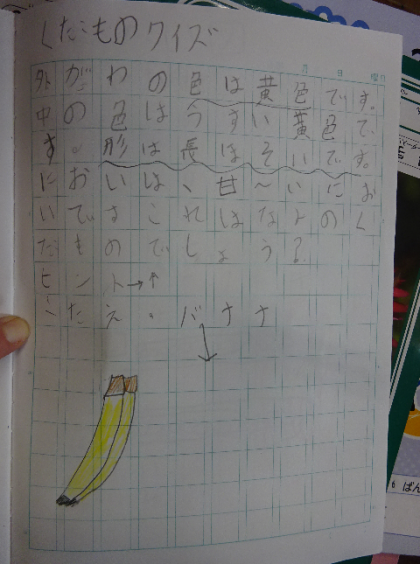 くだものクイズ
月 日 曜日
外がわの色は黄色です。
中の色はうすい黄色で
す。形は長ほそいです。
においは、甘〜いにお
いです これはなんのく
だものでしょう?
ヒント→↑
こたえ・バナナ
6 ばん